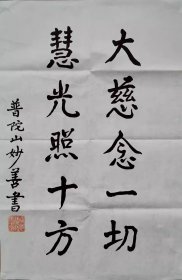 大慈念一切
慧光照十方
普陀山妙善书